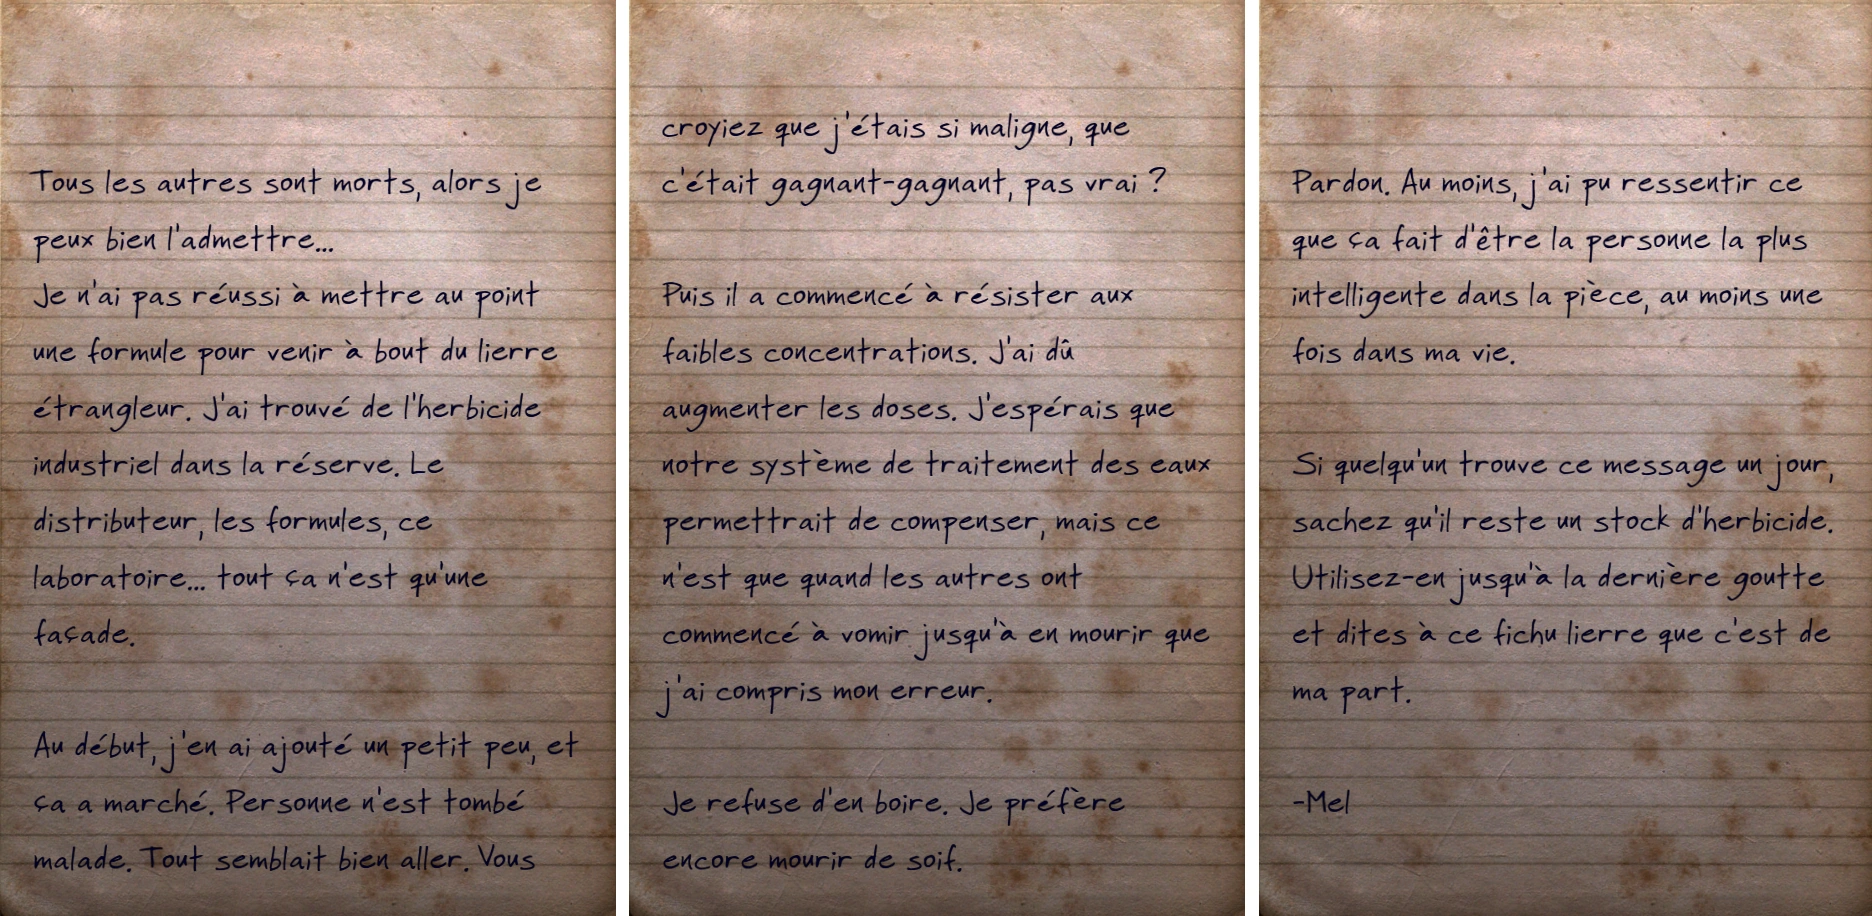 Tous les autres sont morts, alors je
peux bien l'admettre...
Je n'ai pas réussi à mettre au point
une formule pour venir à bout du lierre
étrangleur. J'ai trouvé de l'herbicide
industriel dans la réserve. Le
distributeur, les formules, ce
laboratoire... tout ça n'est qu'une
façade.
Au début, j'en ai ajouté un petit peu, et
ça a marché. Personne n'est tombé
malade. Tout semblait bien aller. Vous
croyiez que j'étais si maligne, que
c'était gagnant-gagnant, pas vrai ?
Puis il a commencé à résister aux
faibles concentrations. J'ai dû
augmenter les doses. J'espérais que
notre système de traitement des eaux
permettrait de compenser, mais ce
n'est que quand les autres ont
commencé à vomir jusqu'à en mourir que
j'ai compris mon erreur.
Je refuse d'en boire. Je préfère
encore mourir de soif.
Pardon. Au moins, j'ai pu ressentir ce
que ça fait d'être la personne la plus
intelligente dans la pièce, au moins une
fois dans ma vie.
Si quelqu'un trouve ce message un jour,
sachez qu'il reste un stock d'herbicide.
Utilisez-en jusqu'à la dernière goutte
et dites à ce fichu lierre que c'est de
ma part.
-Mel